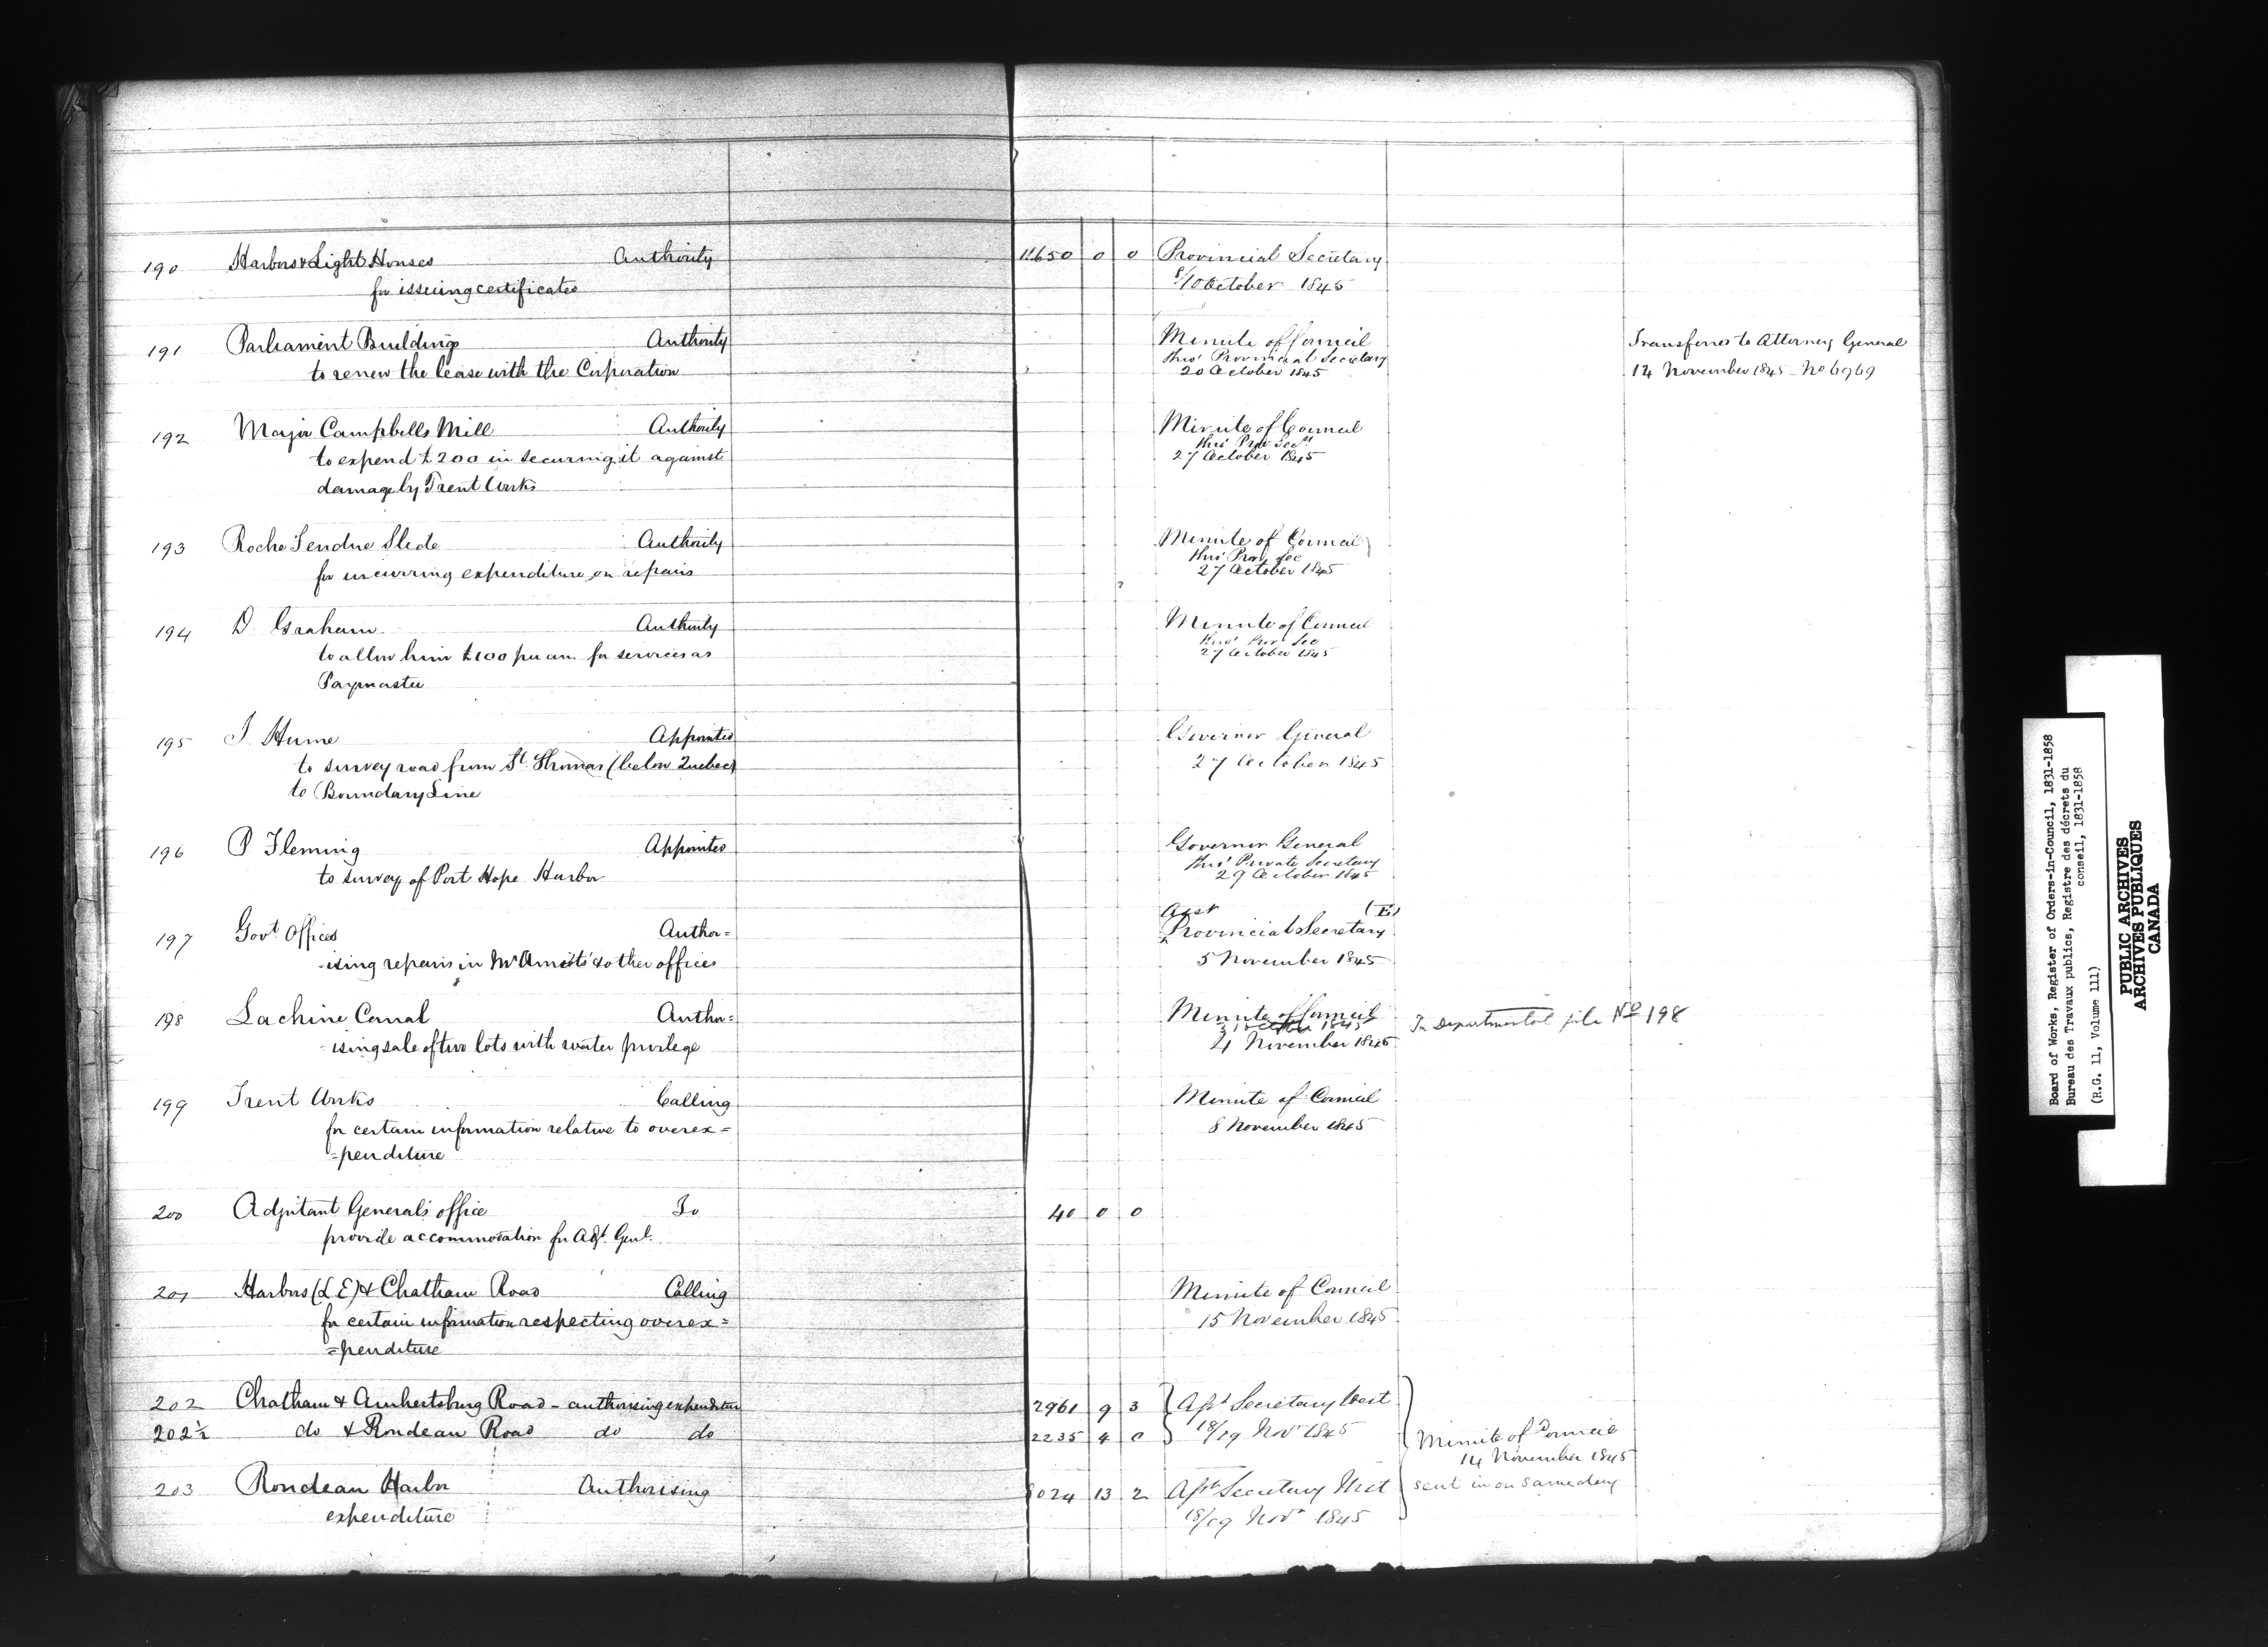 190 Harbors & Light Houses Authority 11650 0 0 Provincial Secretary
for issuing certificates 8/10 October 1845
191 Parliament Buildings Authority Minute of Council Transferred to Attorney General
to renew the lease with the Corporation thro' Provincial Secretary 14 November 1845 - No 6969
20 October 1845
192 Major Campbells Mill Authority Minute of Council
to expend £200 in securing it against thro' Prov Secy
27 October 1845
damage by Trent Works
193 Roche Fendue Slide Authority Minute of Council
for incurring expenditure on repairs thro' Prov Sec
27 October 1845
194 D. Graham Authority Minute of Council
to allow him £100 per an. for services as thro' Prov Sec
27 October 1845
Paymaster
195 J. Hume Appointed Governor General
to survey road from St. Thomas (below Quebec) 27 October 1845
to Boundary Line
196 P Fleming Appointed Governor General
to survey of Port Hope Harbor thro' Private Secretary
29 October 1845
Asst (E)
197 Govt Offices Author= Provincial Secretary
-ising repairs in Mr Amiots' & other offices 5 November 1845
198 Lachine Canal Author= Minute of Council In Departmental file No 198
31 October 1845
-ising sale of two lots with water privilege 4 November 1845
199 Trent Works Calling Minute of Council
for certain information relative to overex= 8 November 1845
=penditure
200 Adjutant General's office To 40 0 0
provide accommodation for Adjt. Genl.
201 Harbors (L E) & Chatham Road Calling Minute of Council
for certain information respecting overex= 15 November 1845
=penditure
202 Chatham & Amhertsburg Road - authorising expenditure 2961 9 3 Asst Secretary West
202½ do & Rondeau Road do do 2235 4 0 18/19 Novr 1845 Minute of Council
14 November 1845
203 Rondeau Harbor Authorising 13 2 Asst Secretary West sent in on same day
expenditure 18/19 Novr 1845
Board of Works, Register of Orders-in-Council, 1831-1858
Bureau des Travaux publics, Registre des décrets du
conseil, 1831-1858
(R.G. 11, Volume 111)
PUBLIC ARCHIVES
ARCHIVES PUBLIQUES
CANADA